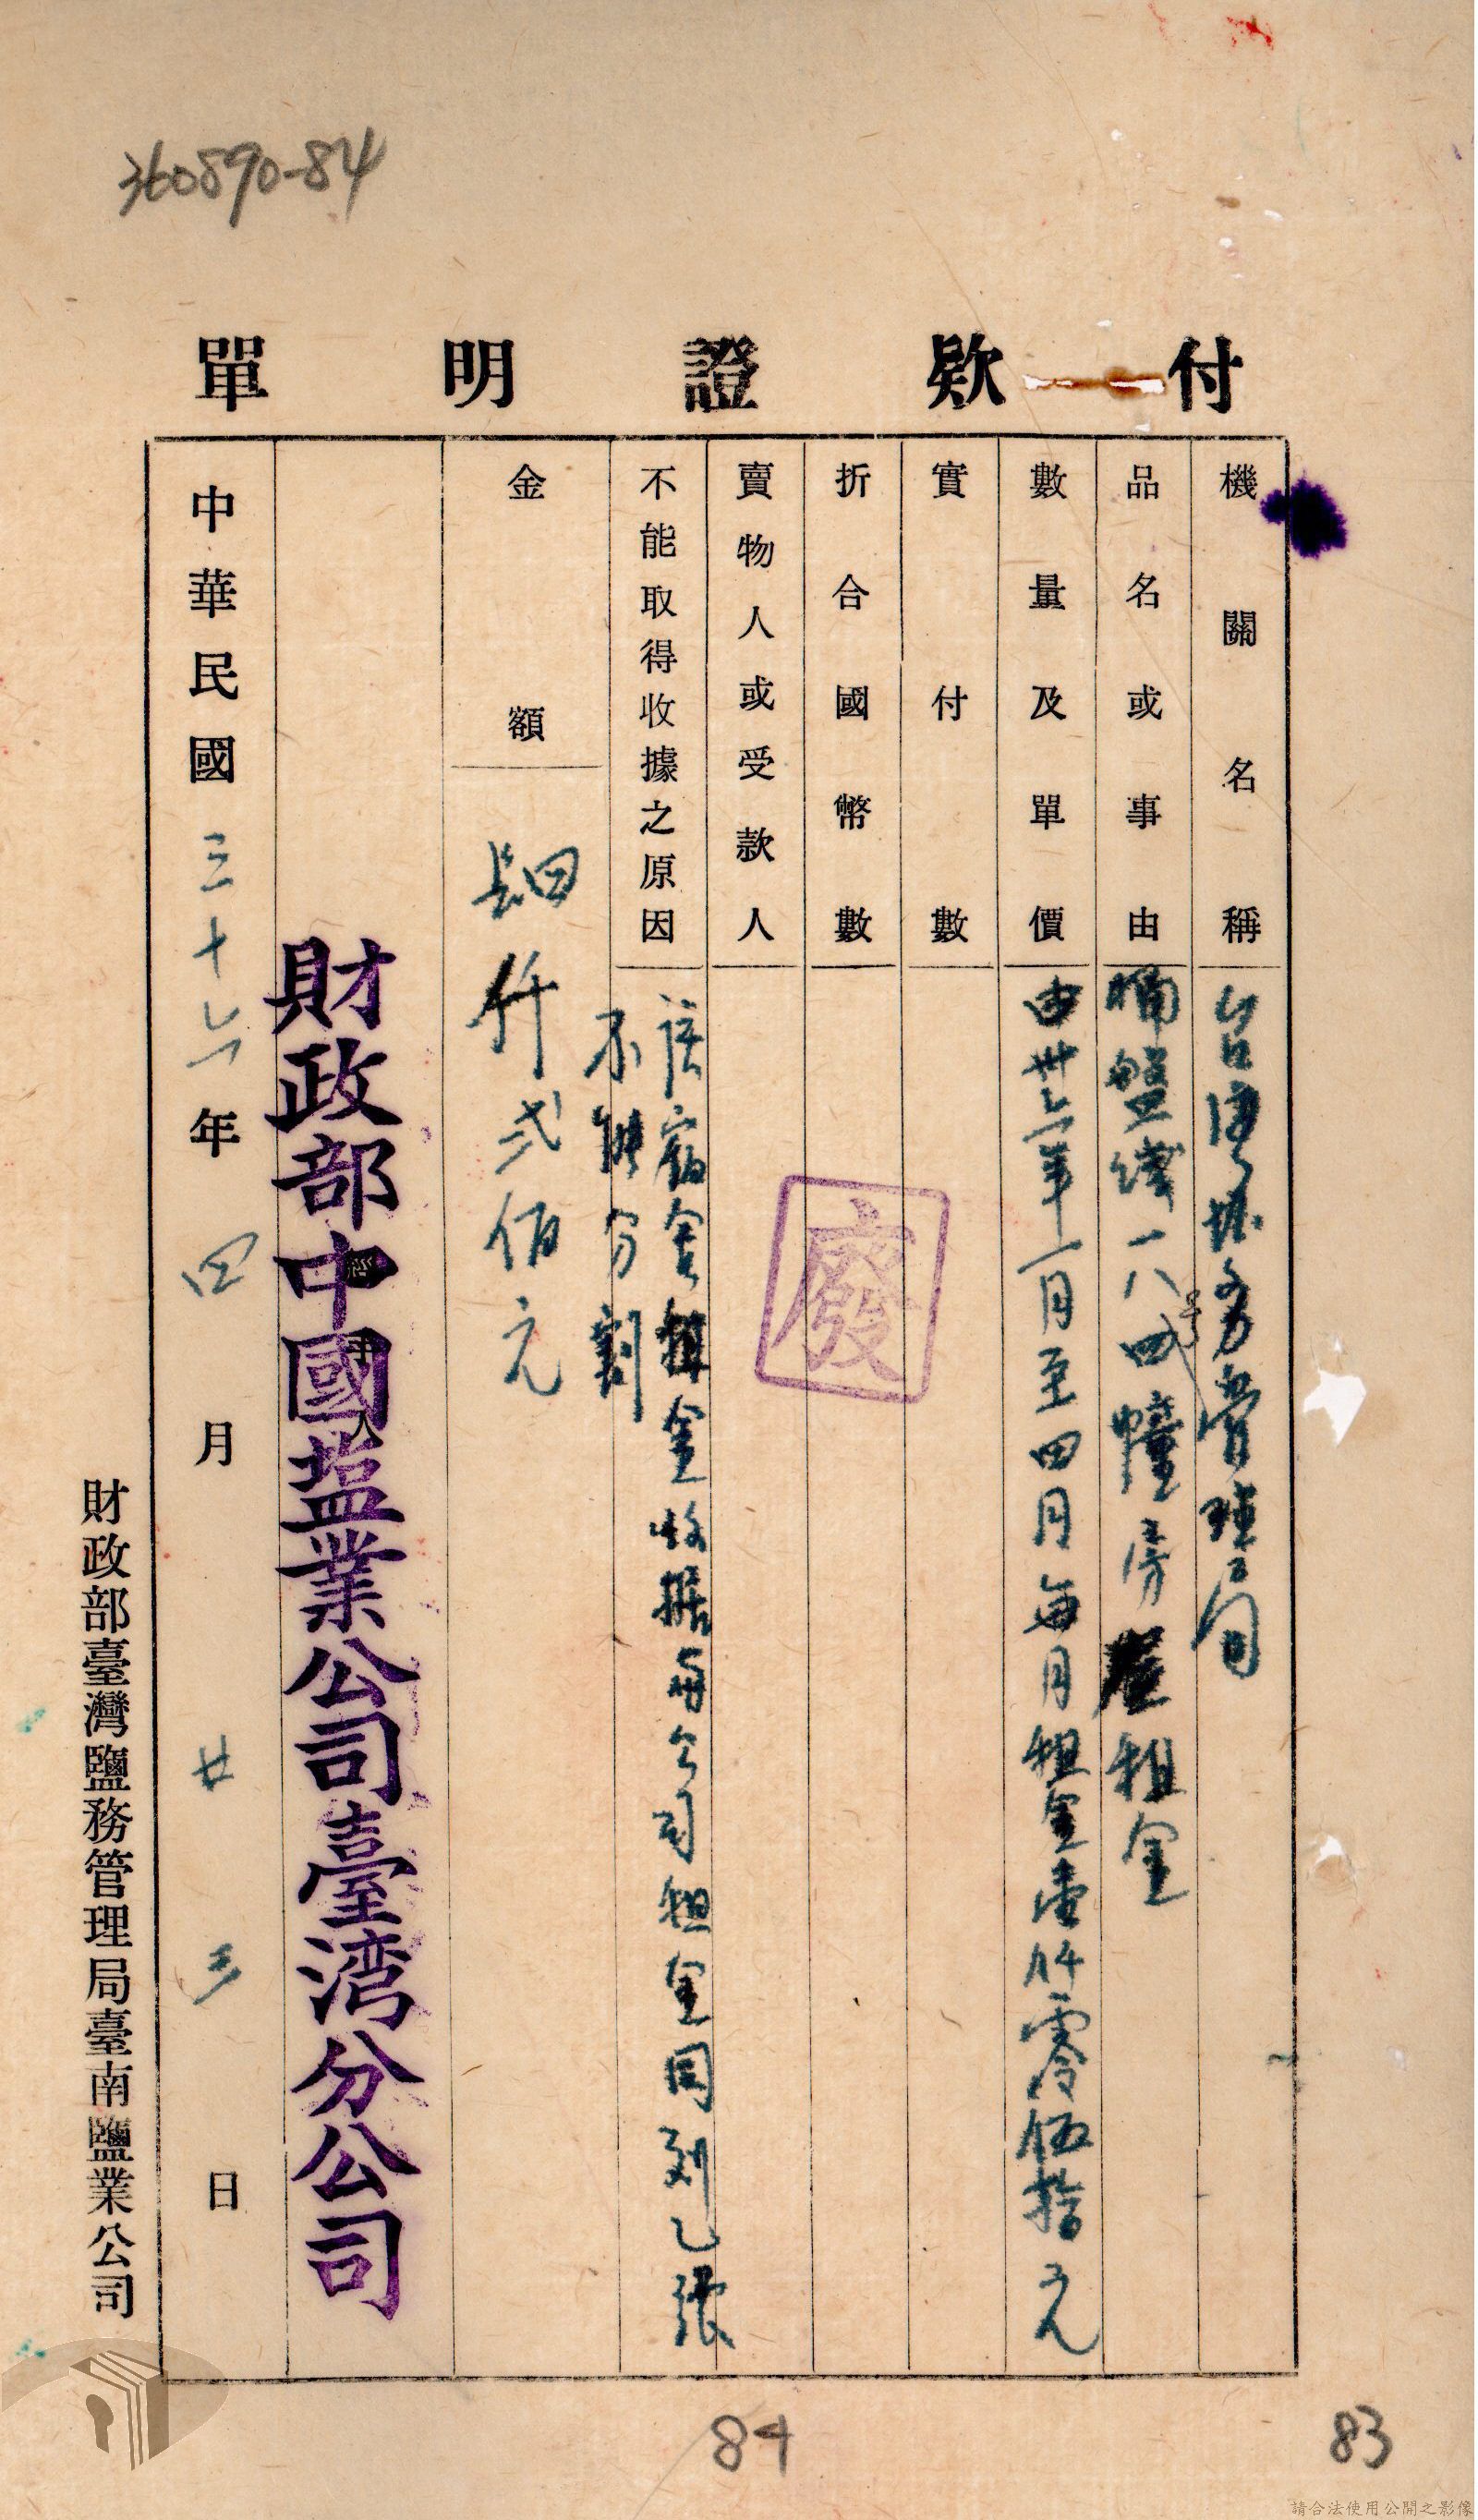 360890-84
付款證明單
機關名稱
台灣塩务管理局
品名或事由
桶盤淺一八四号幢房屋租金
數量及單價
由卅六年一月至四月每月租金壹仟零伍拾元
實付數
折合國幣數
廢
賣物人或受款人
不能取得收據之原因
該宿舍租金收据与公司租金同列乙張
不能分割
金額
四仟弍佰元
財政部中國塩業公司臺湾分公司
中華民國三十六年四月廿三日
財政部臺灣鹽務管理局臺南鹽業公司
84
83
請合法使用公開之影像